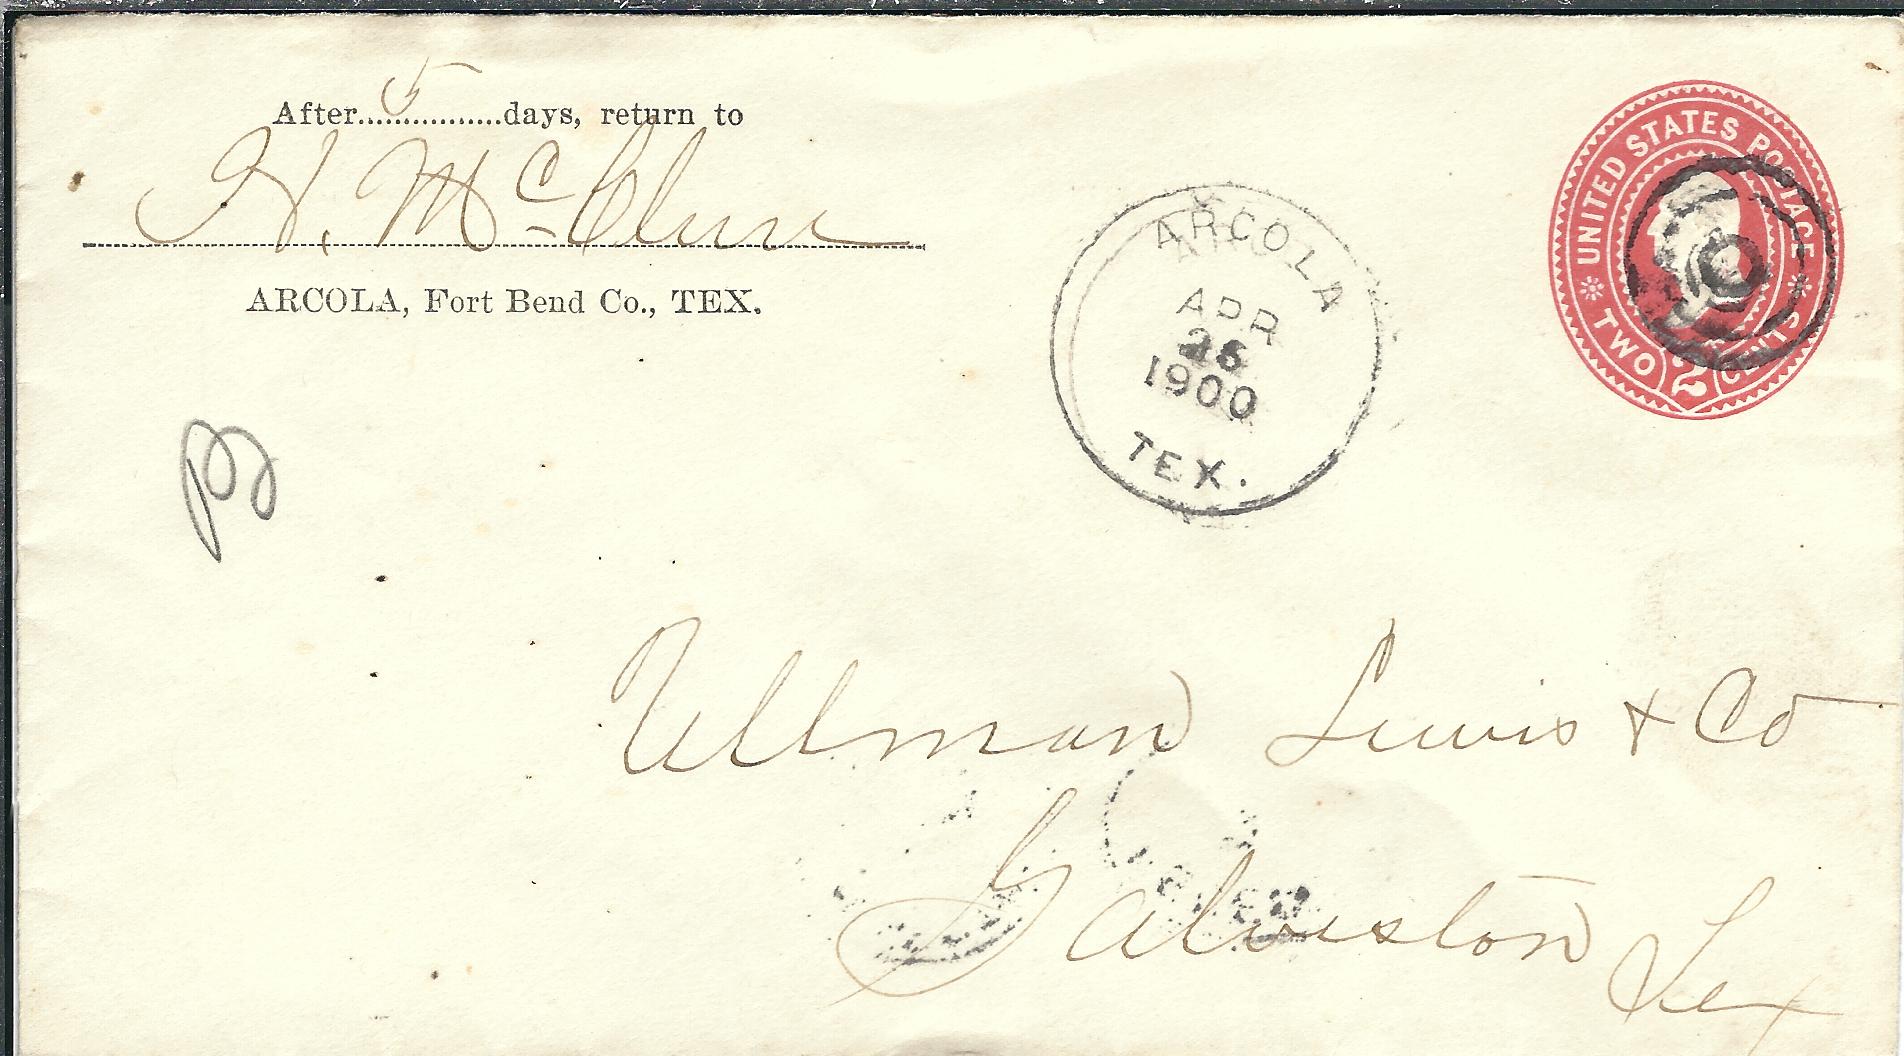 After 5 days, return to
H. McClure
ARCOLA, Fort Bend Co., TEX.
ARCOLA
APR
1900
TEX.
UNITED STATES POSTAGE
TWO 2 CENTS
Ullman Lewis & Co
Galveston Tex